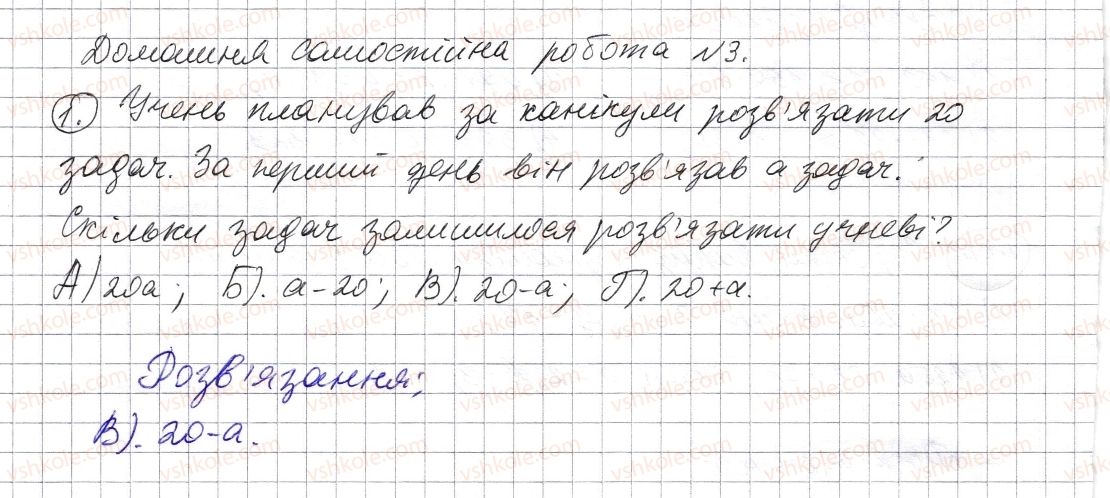 Домашня самостійна робота №3.
1. Учень планував за канікули розв'язати 20
задач. За перший день він розв'язав а задач.
Скільки задач залишилося розв'язати учневі?
А) 20а; Б). а-20; В). 20-а; Г). 20+а.
Розв'язання:
В). 20-а.